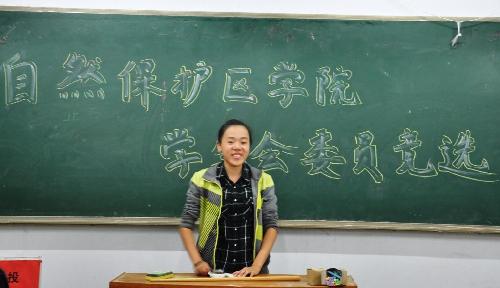 自然保护区学院
学生会委员竞选
投